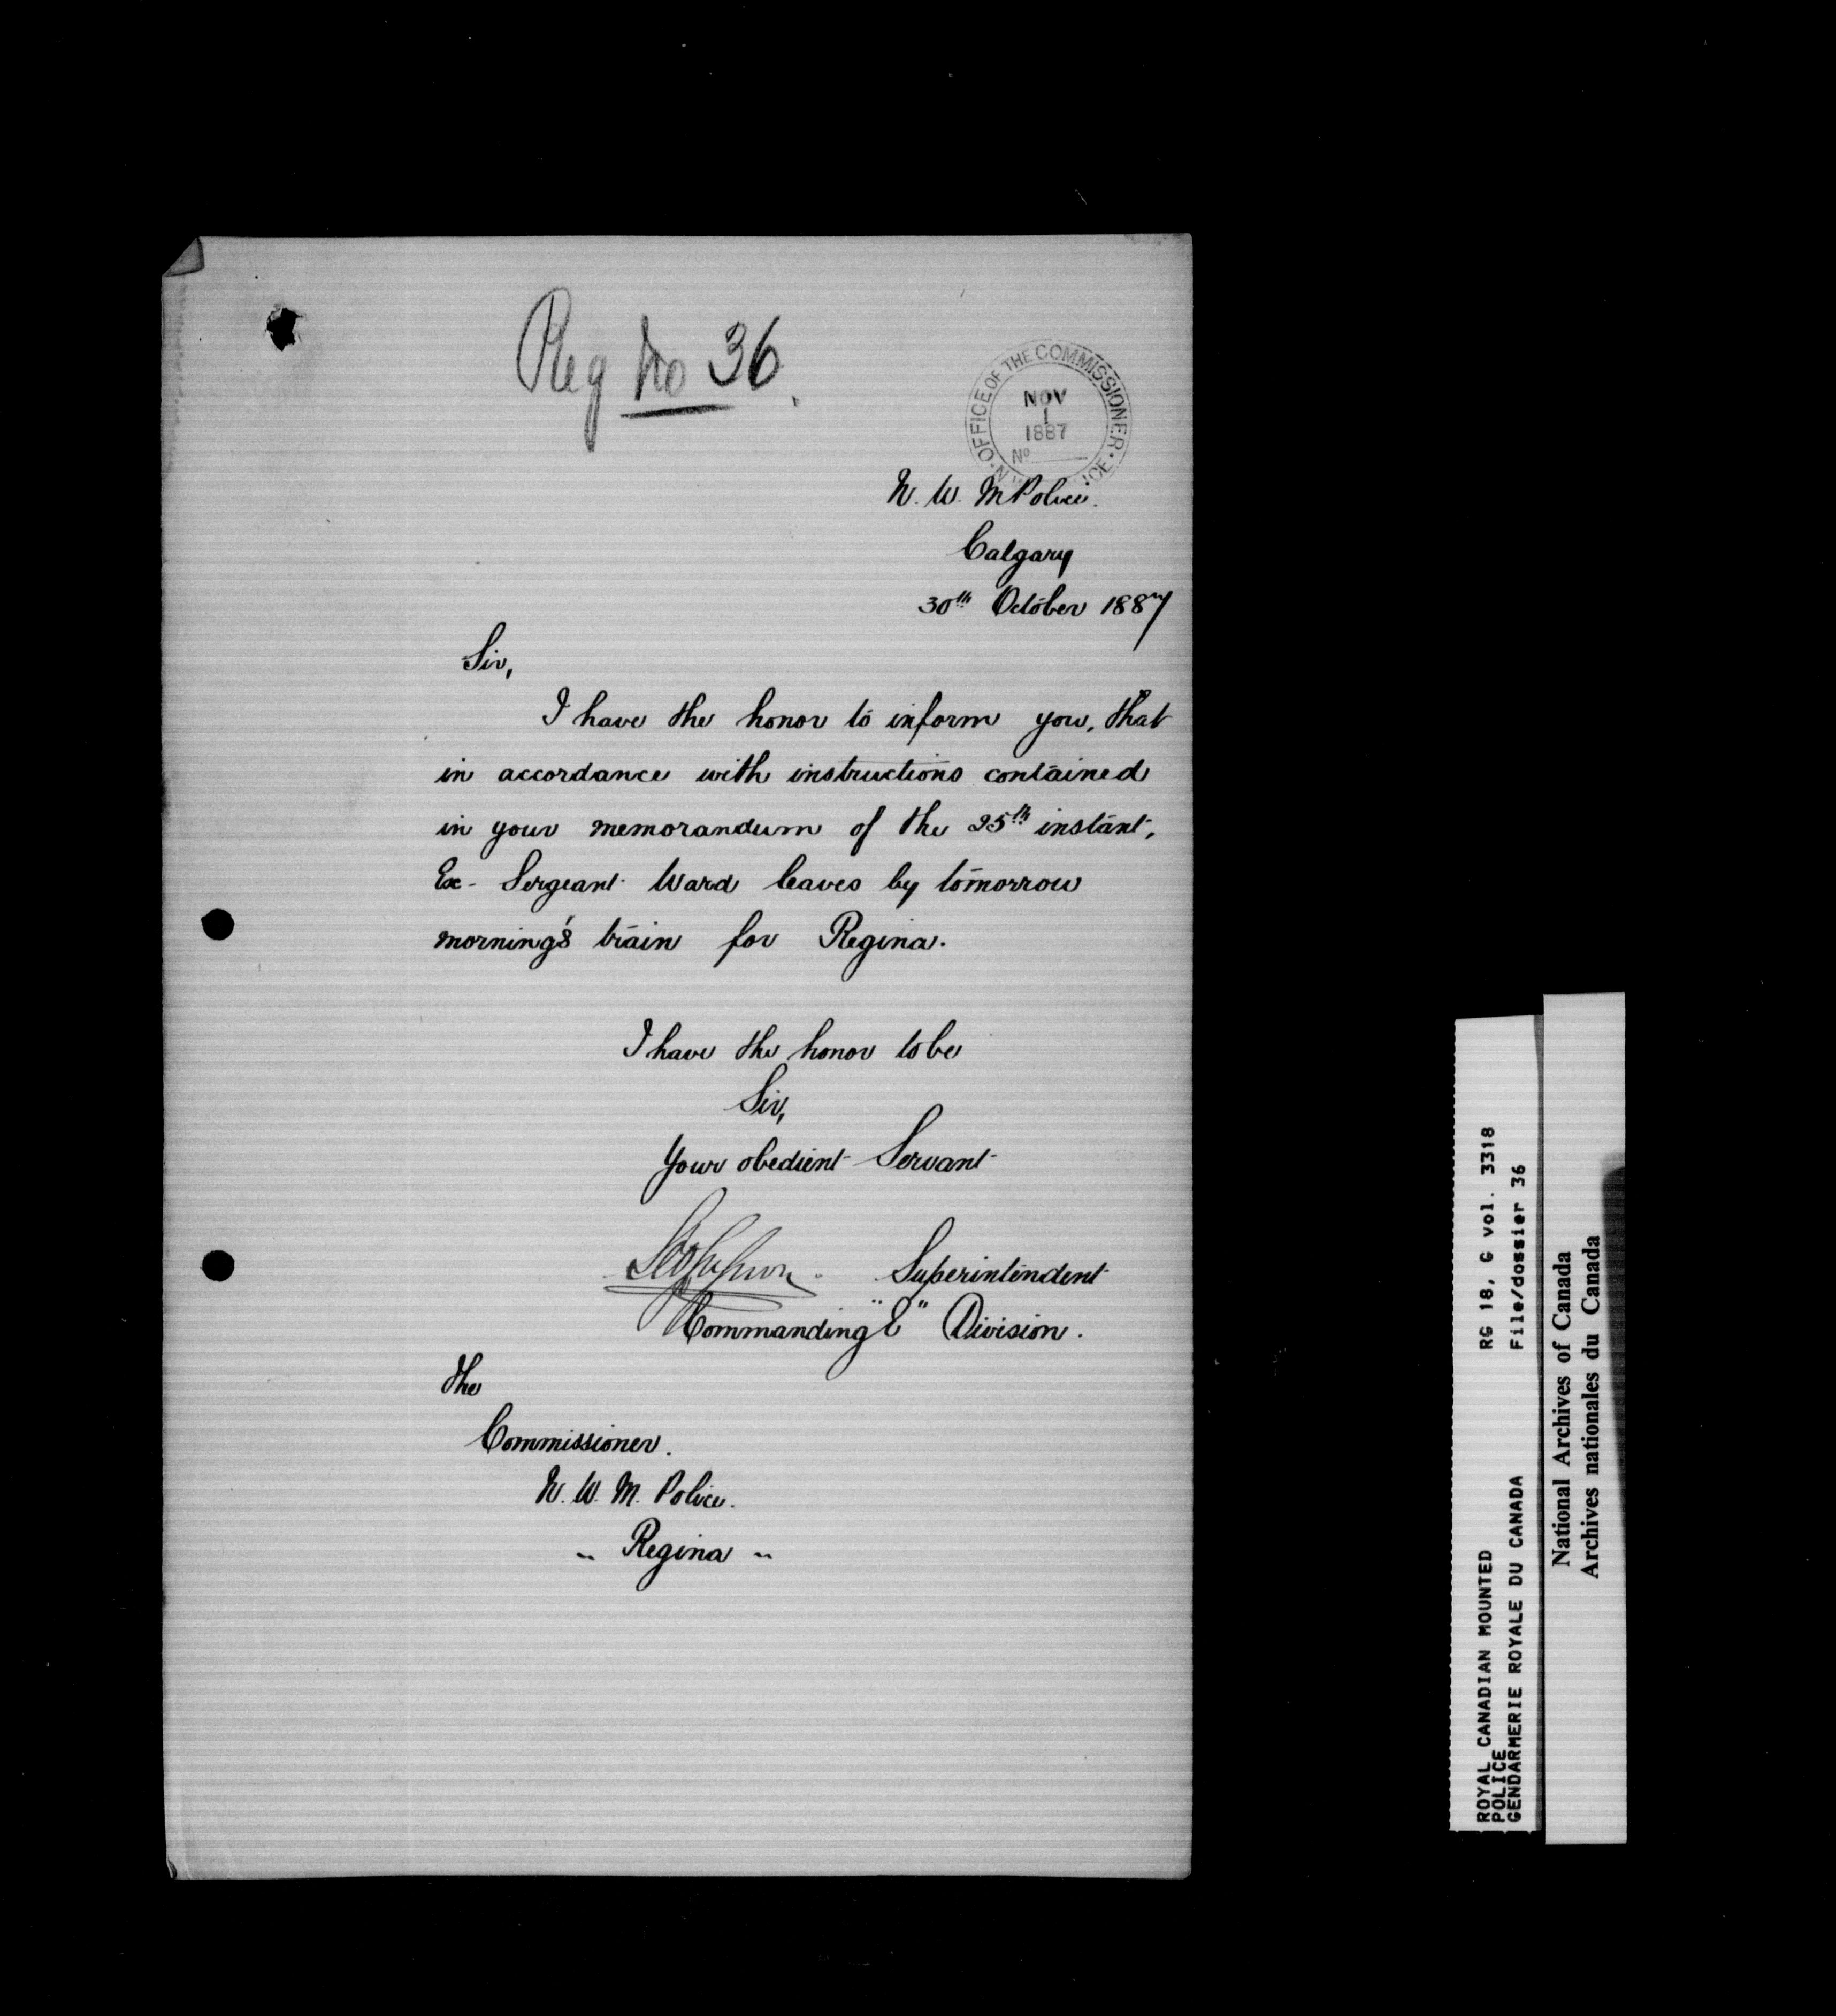 Reg No 36.
OFFICE OF THE COMMISSIONER
NOV
1
1887
No
N. W. M Police.
Calgary
30th October 1887
Sir,
I have the honor to inform you, that
in accordance with instructions contained
in your memorandum of the 25th instant,
Ex- Sergeant Ward leaves by tomorrow
morning's train for Regina.
I have the honor to be
Sir,
Your obedient Servant
Superintendent
Commanding "E" Division.
The
Commissioner.
N. W. M. Police.
" Regina "
ROYAL CANADIAN MOUNTED RG 18, G vol. 3318
POLICE
GENDARMERIE ROYALE DU CANADA File/dossier 36
National Archives of Canada
Archives nationales du Canada